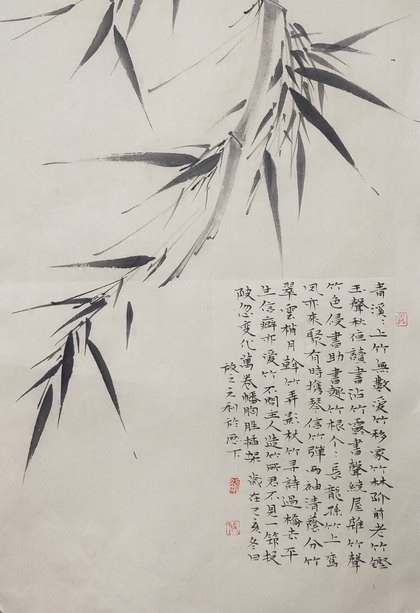 青溪溪上竹無數愛竹移家竹林阶前老竹鏗
玉聲秋夜讀書沾竹露書聲繞屋雜竹聲
竹色侵書助書趣竹根个个長龍孫竹上鸞
因亦來聚有時携琴信竹彈兩袖清蔭分竹
翠雲梢月幹竹弄影杖竹尋詩過橋去平
生信癖亦愛竹不問主人造竹所君不見一節投
陂忽變化萬卷幡胸胜插架 歲在乙亥冬日
於下